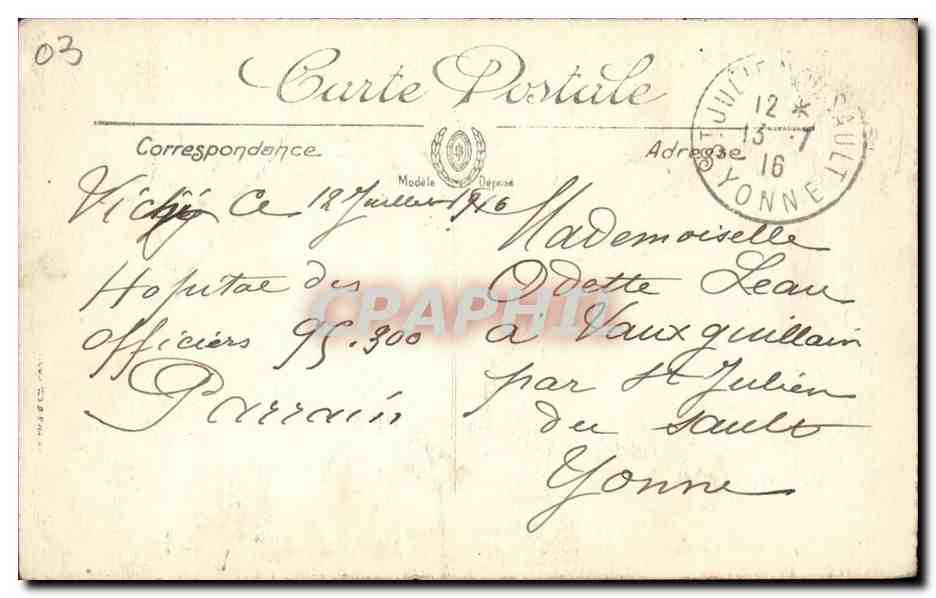 03
Carte Postale
ST JULIEN DU SAULT
12 *
13 - 7
16
YONNE
Correspondance
Adresse
Modèle Déposé
Vichy Ce 12 Juillet 1916
Hopital des
Officiers 95.300
Parrain
Mademoiselle
Odette Leau
à Vauxguillain
par St Julien
du Sault
Yonne
CPAPHIL